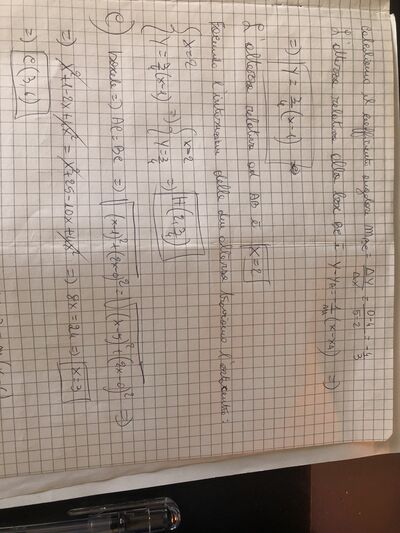 calcoliamo il coefficiente angolare m_BC = ΔY/ΔX = (0-4)/(5-2) = -4/3
L'altezza relativa alla base BC è y-y_A = -1/m (x-x_A) =>
=> Y = 3/4 (x-1)
L'altezza relativa ad AB è x=2
Facendo l'intersezione delle due altezze troviamo l'ortocentro:
{ x=2 { x=2
{ Y=3/4(x-1) => { Y=3/4 => H(2, 3/4)
e) Isoscele => AE=BE => √((x-1)²+(2x-0)²) = √((x-5)²+(2x-0)²) =>
=> x²+1-2x+4x² = x²+25-10x+4x² => 8x=24 => x=3
=> E(3,6)